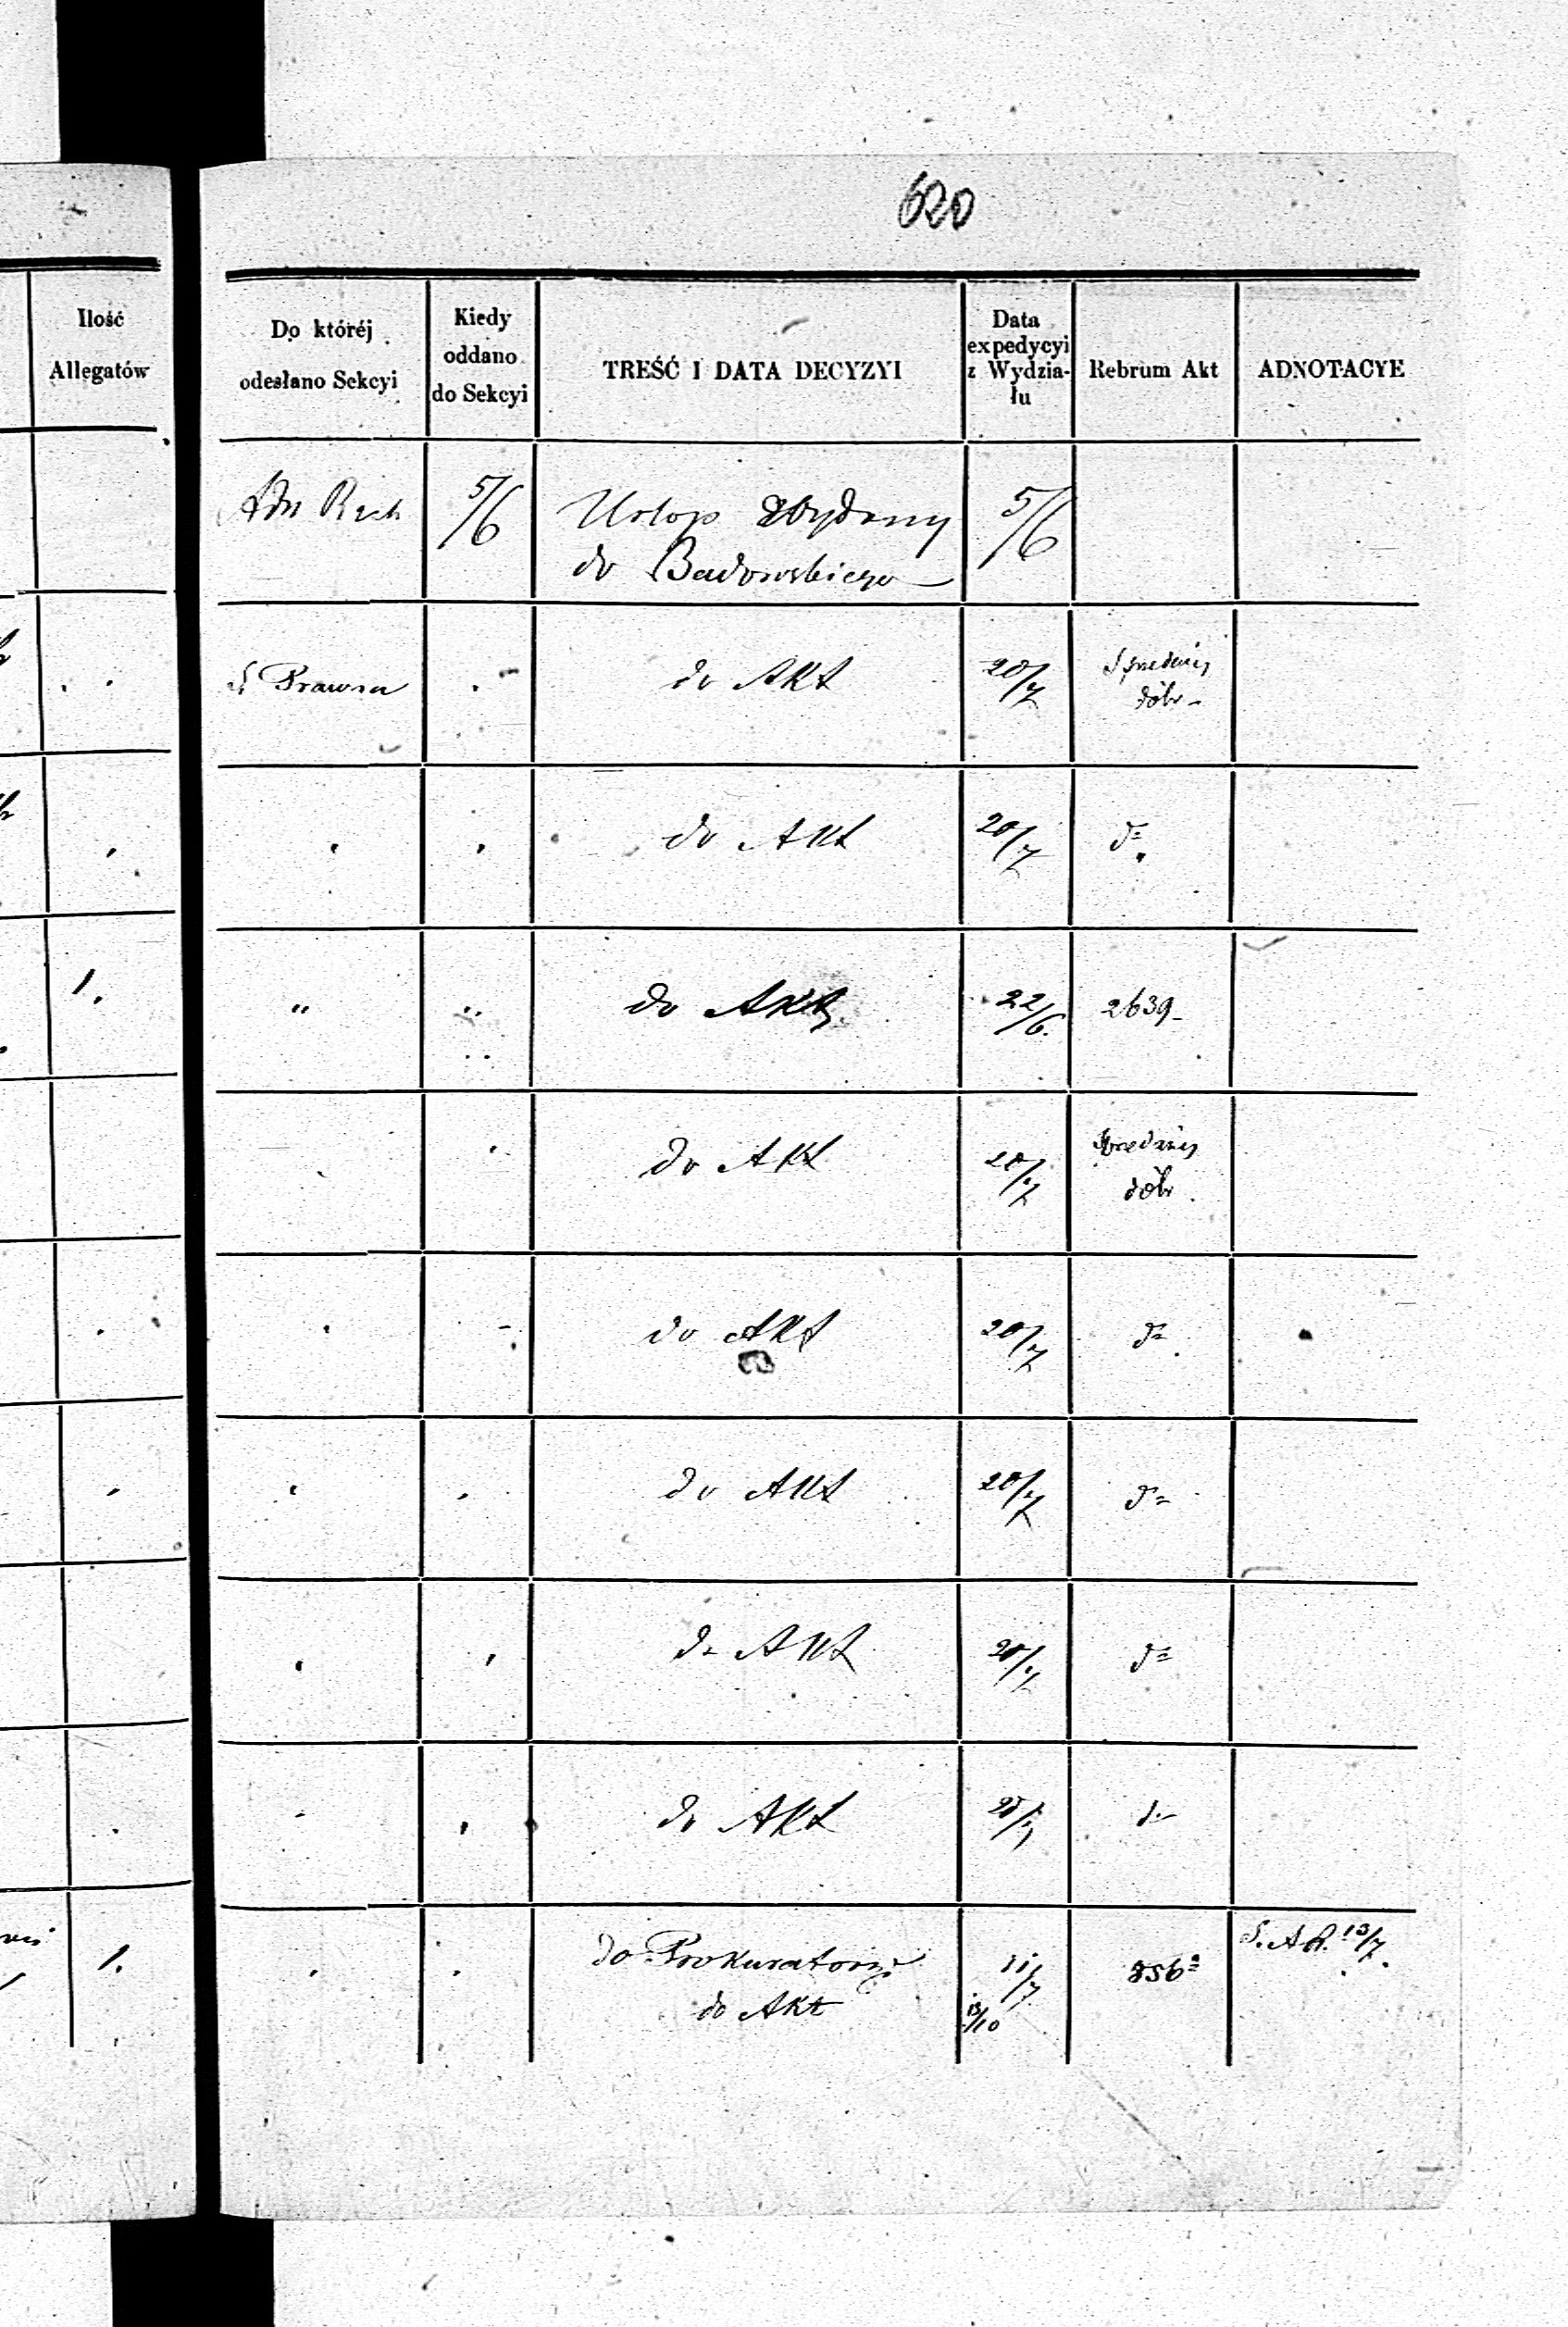 620
Ilość
Allegatów
Do któréj
odesłano Sekcyi
Kiedy
oddano
do Sekcyi
TREŚĆ I DATA DECYZYI
Data
expedycyi
z Wydzia-
łu
Rebrum Akt
ADNOTACYE
5/6
Urlop
5/6
do Badowskiego
S Prawna
do Akt
20/7
dóbr -
do Akt
20/7
do
1.
"
"
do Akt
22/6.
2639 -
do Akt
20/7
dóbr
do Akt
20/7
do
do Akt
20/7
do
do Akt
20/7
do
do Akt
20/7
do
1.
do Prokuratoryi
11/7
856
S. A R. 13/7.
do Akt
13/10